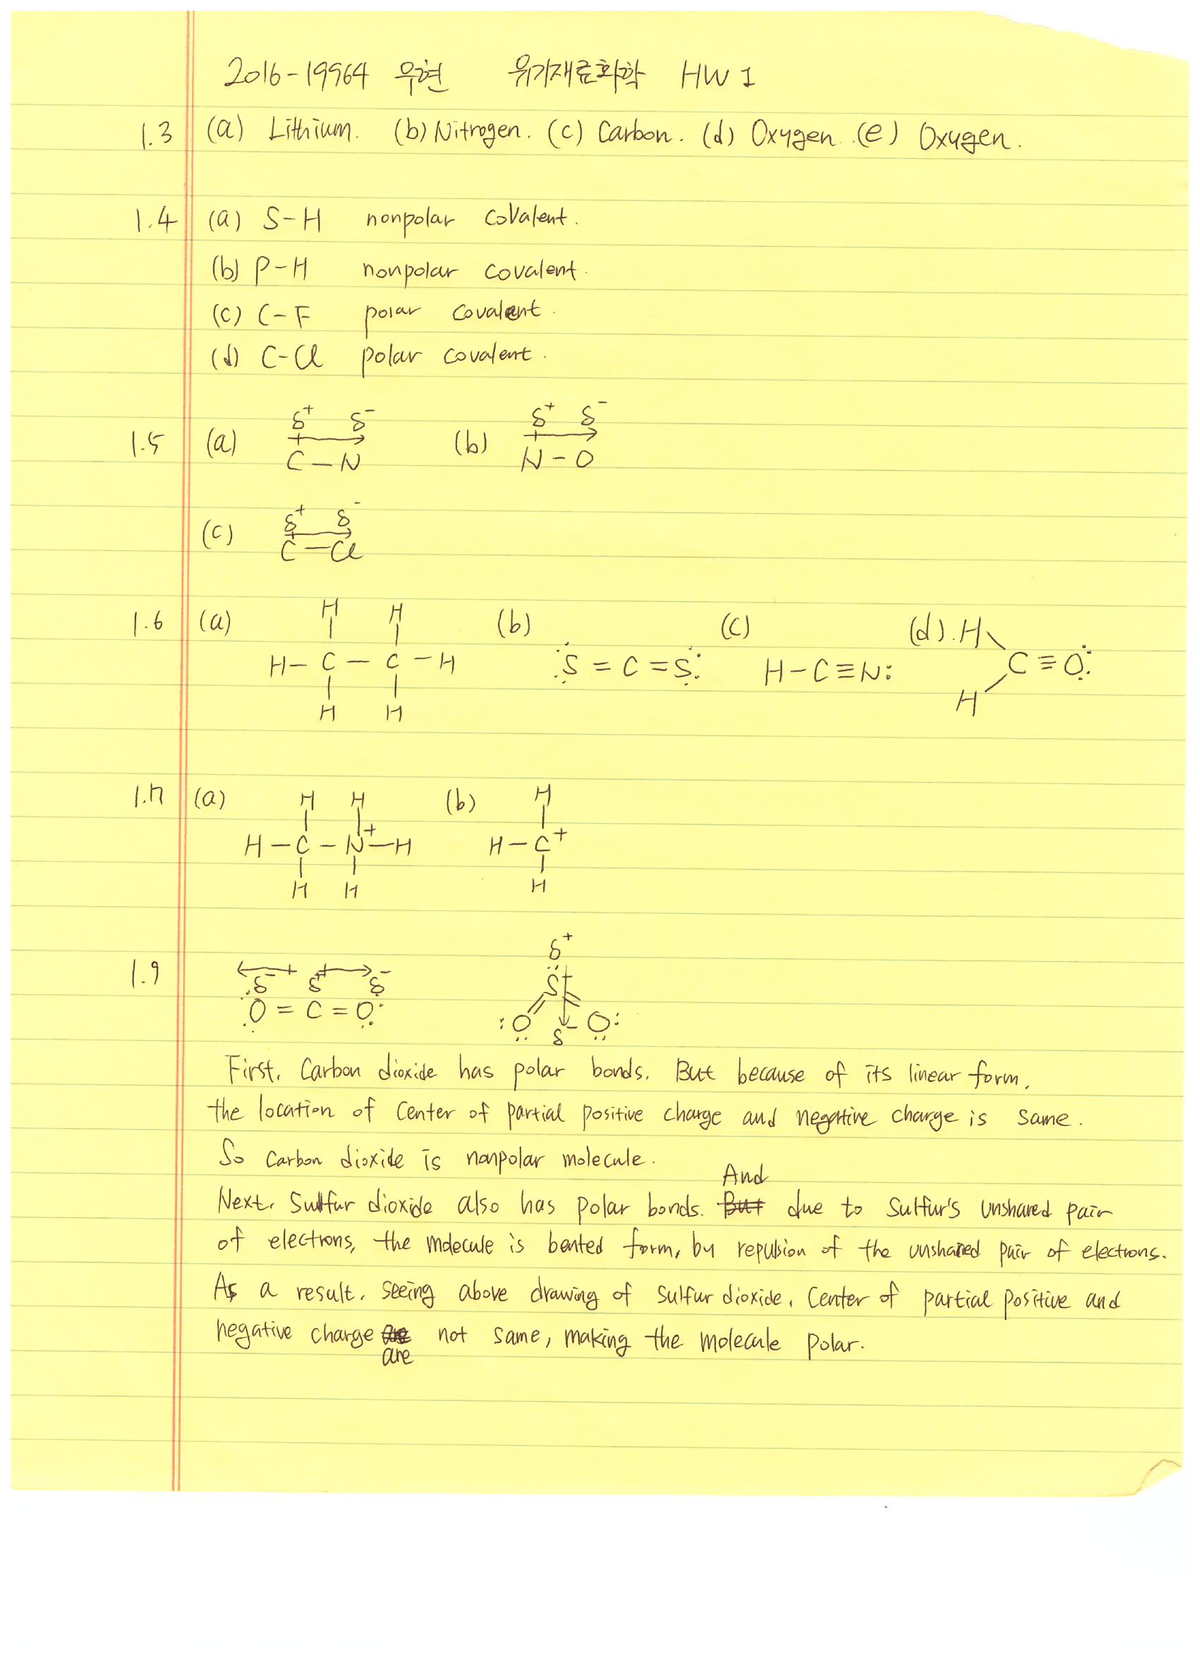 2016-19964 우현 유기재료화학 HW 1
1.3 (a) Lithium. (b) Nitrogen. (c) Carbon. (d) Oxygen. (e) Oxygen.
1.4 (a) S-H nonpolar covalent.
(b) P-H nonpolar covalent.
(c) C-F polar covalent.
(d) C-Cl polar covalent.
1.5 (a) δ+ δ- (b) δ+ δ-
C-N N-O
(c) δ+ δ-
C-Cl
1.6 (a) H H (b) (c) (d). H
H-C-C-H S=C=S H-C≡N: C≡O
H H H
1.7 (a) H H (b) H
H-C-N+-H H-C+
H H H
1.9 δ+
δ- δ+ δ- S
O=C=O :O δ- O:
First, Carbon dioxide has polar bonds. But because of its linear form,
the location of center of partial positive charge and negative charge is same.
So carbon dioxide is nonpolar molecule.
And
Next, Sulfur dioxide also has polar bonds. But due to Sulfur's unshared pair
of electrons, the molecule is bented form, by repulsion of the unshared pair of electrons.
As a result, seeing above drawing of sulfur dioxide, center of partial positive and
negative charge not same, making the molecule polar.
are